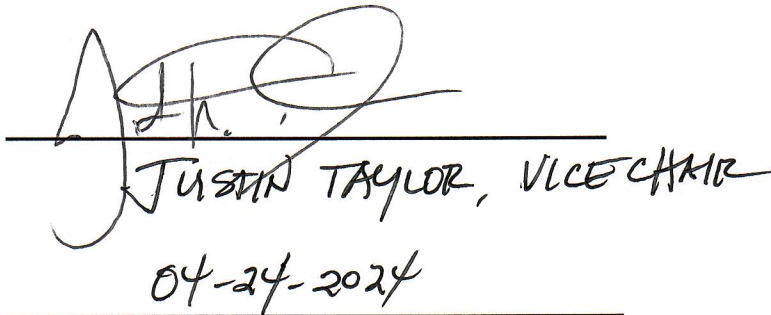 JUSTIN TAYLOR, VICE CHAIR
04-24-2024